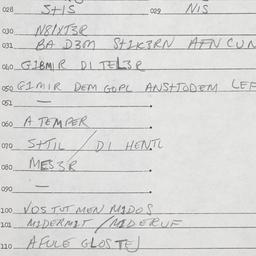 028 S+IS 029 NIS
030 N8IXT3R
031 BA D3M S+1K3RN AFN CUN
040 G1BMIR DI TEL3R
050 G1MIR DEM GOPL ANSHTODEM LEF
051 —
060 A TEMPER
070 S+TIL / DI HENTL
080 MES3R
090 —
100 VOS TUT MEN M1DOS
101 M1DERM1T / M1DERUF
110 AFULE GLOSTEJ